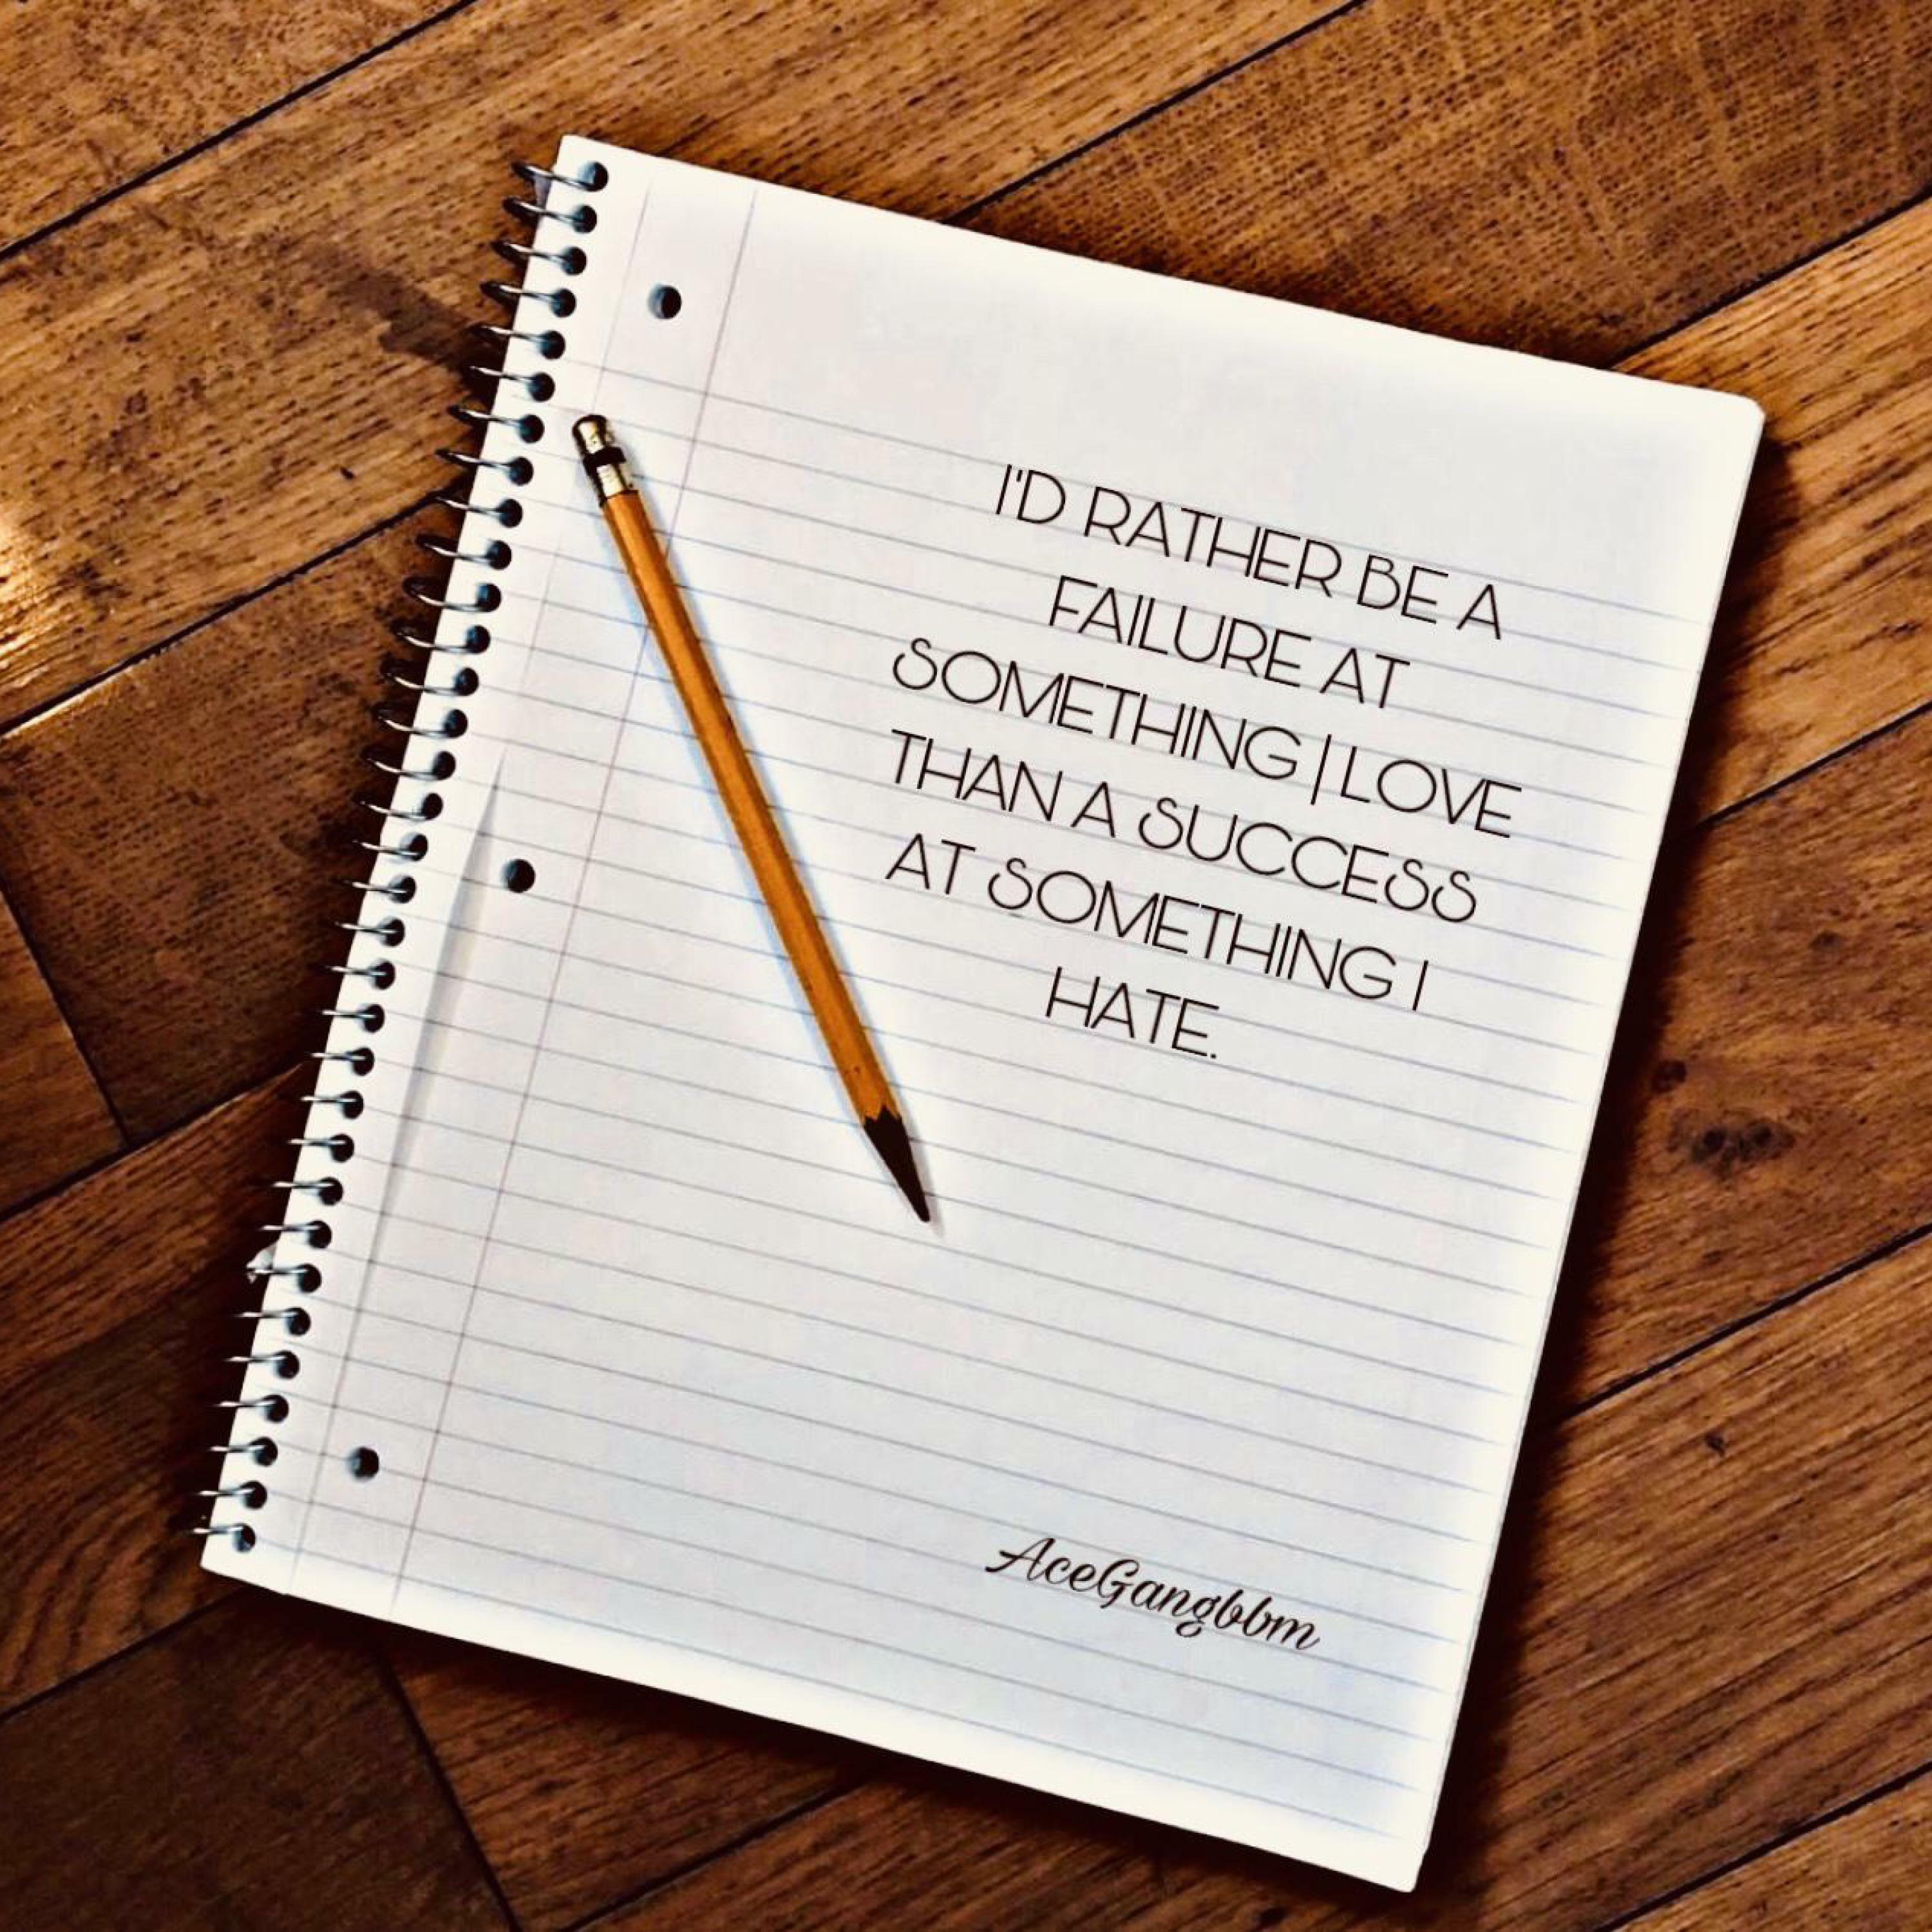 I'D RATHER BE A
FAILURE AT
SOMETHING I LOVE
THAN A SUCCESS
AT SOMETHING I
HATE.
AceGangbbm